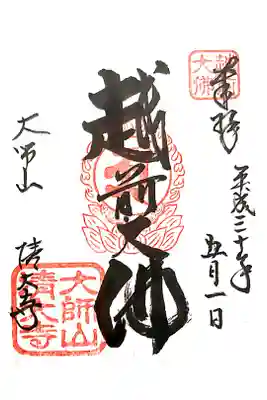 奉拝
平成三十年
五月一日
越前大仏
大師山
清大寺
越前
大佛
大師山
清大寺